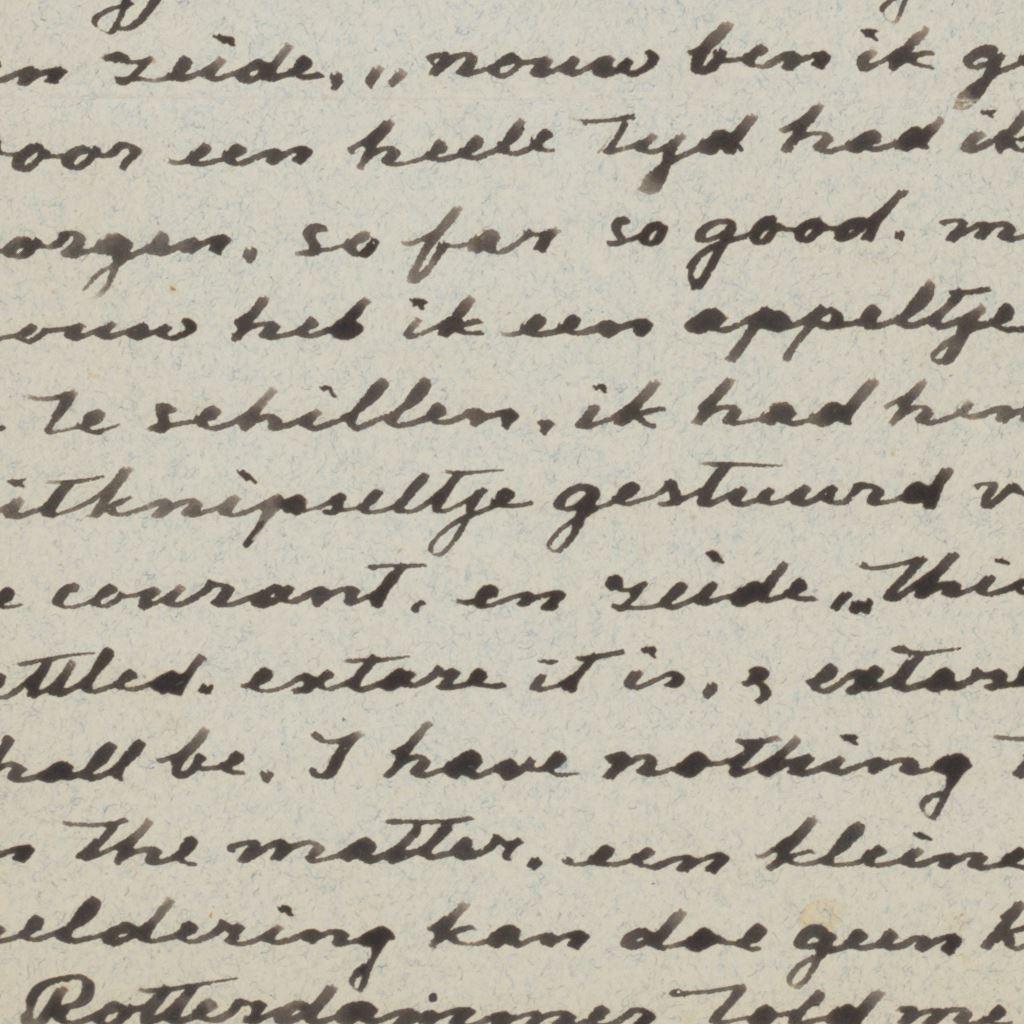 en zeide, „nouw ben ik ge
voor een heele tyd had ik
orgen. so far so good. m
ouw heb ik een appeltje
te schillen. ik had hem
uitknipseltje gestuurd v
e courant. en zeide „This
ettled. extare it is, & extare
hall be. I have nothing t
n the matter. een kleine
eldering kan doe geen k
Rotterdammer told me